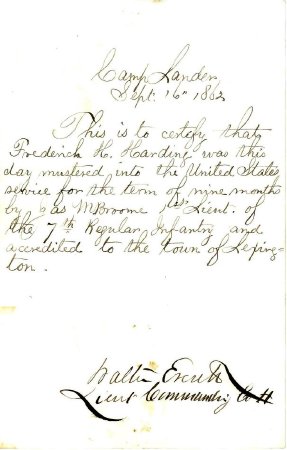 Camp Lander
Sept. 16th 1862
This is to certify that
Frederick H. Harding was this
day mustered into the United States
service for the term of nine months
by M Broome Lieut. of
the 7th Regular Infantry and
accredited to the town of Lexing-
ton.
Walter
Lieut Commanding